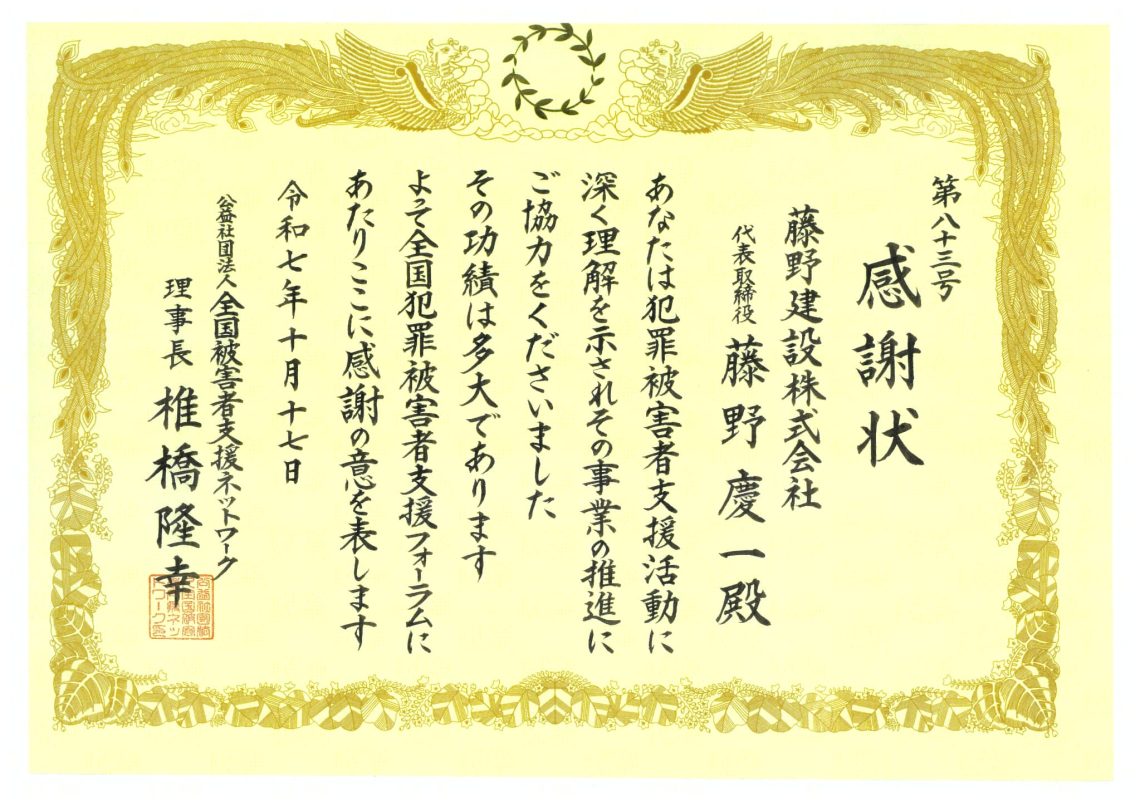 第八十三号
感謝状
藤野建設株式会社
代表取締役 藤野慶一殿
あなたは犯罪被害者支援活動に
深く理解を示されその事業の推進に
ご協力をくださいました
その功績は多大であります
よって全国犯罪被害者支援フォーラムに
あたりここに感謝の意を表します
令和七年十月十七日
公益社団法人全国被害者支援ネットワーク
理事長 椎橋隆幸